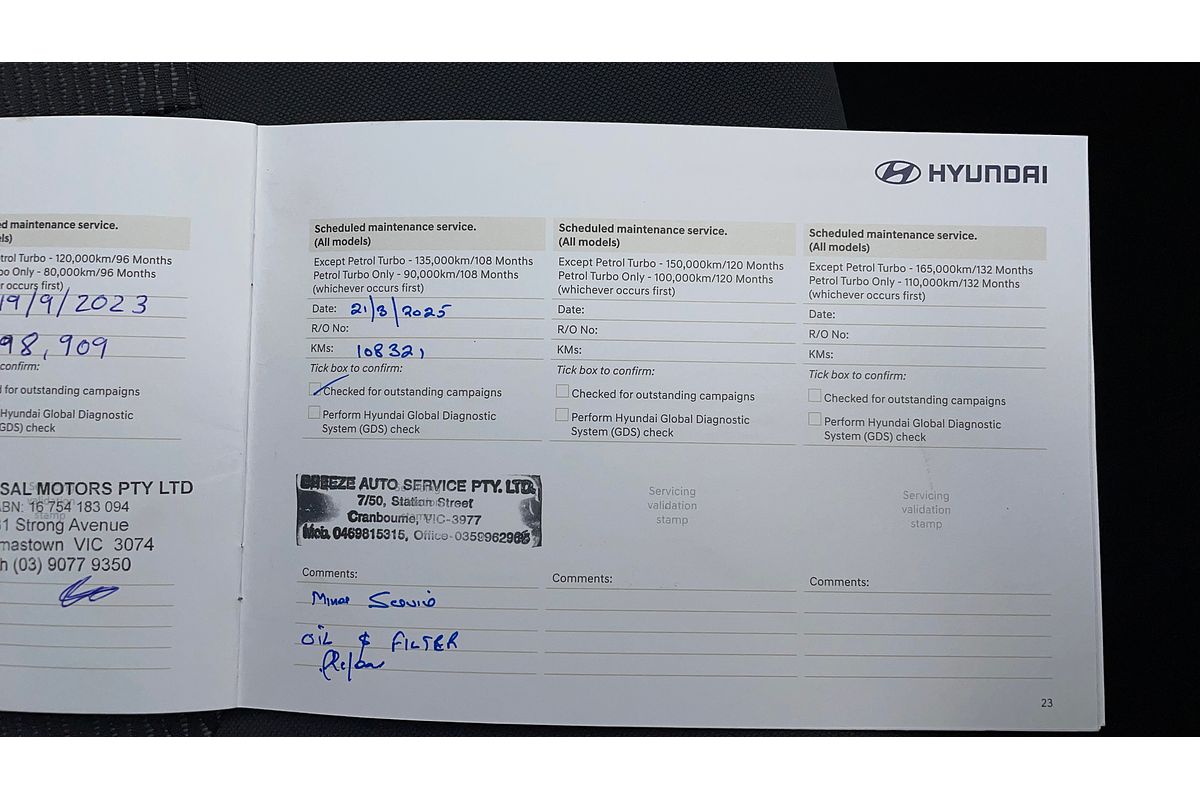 d maintenance service.
els)
trol Turbo - 120,000km/96 Months
bo Only - 80,000km/96 Months
r occurs first)
19/9/2023
98,909
confirm:
d for outstanding campaigns
Hyundai Global Diagnostic
(GDS) check
SAL MOTORS PTY LTD
ABN: 16 754 183 094
31 Strong Avenue
mastown VIC 3074
h (03) 9077 9350
HYUNDAI
Scheduled maintenance service.
(All models)
Except Petrol Turbo - 135,000km/108 Months
Petrol Turbo Only - 90,000km/108 Months
(whichever occurs first)
Date: 21/3/2025
R/O No:
KMs: 108321
Tick box to confirm:
Checked for outstanding campaigns
Perform Hyundai Global Diagnostic
System (GDS) check
BREEZE AUTO SERVICE PTY. LTD.
7/50, Station Street
Cranbourne, VIC-3977
Mob. 0469815315, Office-0359962968
Comments:
Minor Service
OIL & FILTER
Scheduled maintenance service.
(All models)
Except Petrol Turbo - 150,000km/120 Months
Petrol Turbo Only - 100,000km/120 Months
(whichever occurs first)
Date:
R/O No:
KMs:
Tick box to confirm:
Checked for outstanding campaigns
Perform Hyundai Global Diagnostic
System (GDS) check
Servicing
validation
stamp
Comments:
Scheduled maintenance service.
(All models)
Except Petrol Turbo - 165,000km/132 Months
Petrol Turbo Only - 110,000km/132 Months
(whichever occurs first)
Date:
R/O No:
KMs:
Tick box to confirm:
Checked for outstanding campaigns
Perform Hyundai Global Diagnostic
System (GDS) check
Servicing
validation
stamp
Comments:
23